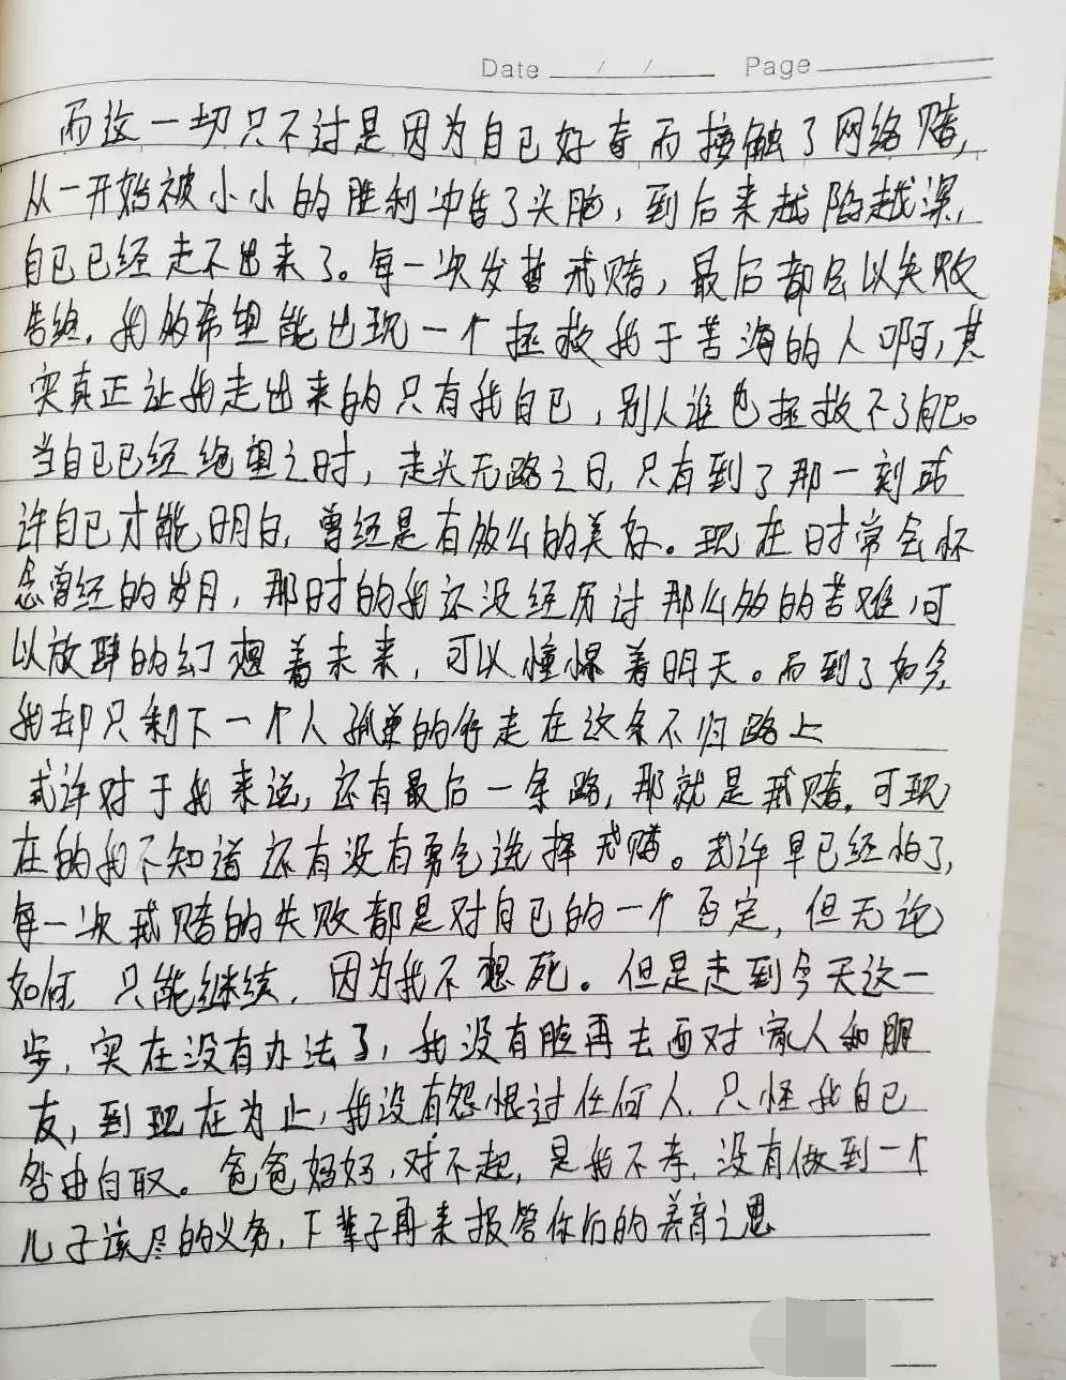 Date / / Page
而这一切只不过是因为自己好奇而接触了网络赌,
从一开始被小小的胜利冲昏了头脑,到后来越陷越深,
自己已经走不出来了。每一次发誓戒赌,最后都会以失败
告终,我多希望能出现一个拯救我于苦海的人啊,其
实真正让我走出来的只有我自己,别人谁也拯救不了自己。
当自己已经绝望之时,走头无路之日,只有到了那一刻或
许自己才能明白,曾经是有多么的美好。现在时常会怀
念曾经的岁月,那时的我还没经历过那么多的苦难,可
以放肆的幻想着未来,可以憧憬着明天。而到了如今
我却只剩下一个人孤单的行走在这条不归路上
或许对于我来说,还有最后一条路,那就是戒赌,可现
在的我不知道还有没有勇气选择戒赌。或许早已经怕了,
每一次戒赌的失败都是对自己的一个否定,但无论
如何,只能继续,因为我不想死。但是走到今天这一
步,实在没有办法了,我没有脸再去面对家人和朋
友,到现在为止,我没有怨恨过任何人,只怪我自己
咎由自取。爸爸妈妈,对不起,是我不孝,没有做到一个
儿子该尽的义务,下辈子再来报答你们的养育之恩